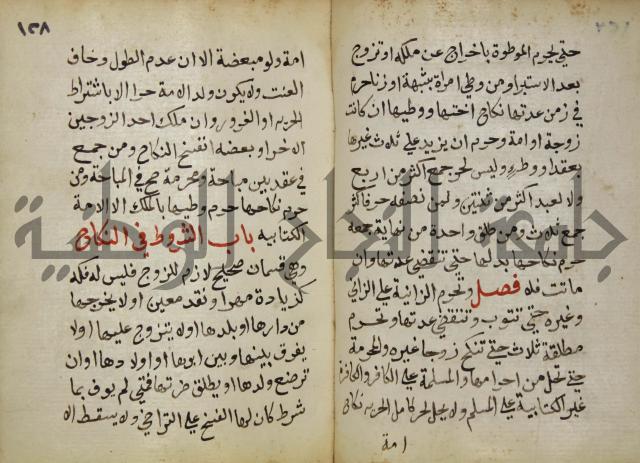 حتى يحرم الموطوة باخراج عن ملكه او تزوج
بعد الاستبراء ومن وطي امراة بشبهة او زنا حرم
في زمن عدتها نكاح اختها ووطيها ان كانت
زوجة او امة وحرم ان يزيد على ثلاث غيرها
بعقد او وطء وليس لحر جمع اكثر من اربع
ولا لعبد اكثر من ثنتين ولمن نصفه حر فاكثر
جمع ثلاث ومن طلق واحدة من نهاية جمعه
حرم نكاحها بدلها حتى تنقضي عدتها وان
ماتت فلا فصل وتحرم الزانية على الزاني
وغيره حتى تتوب وتنقضي عدتها وتحرم
مطلقة ثلاث حتى تنكح زوجا غيره والمحرمة
حتى تحل من احرامها والمسلمة على الكافر والكافرة
غير الكتابية على المسلم ولا يحل لحر كامل الحرية نكاح
امة
١٣٨
امة ولو مبعضة الا ان عدم الطول وخاف
العنت ولا يكون ولد الامة حرا الا باشتراط
الحرية او الغرور وان ملك احد الزوجين
الاخر او بعضه انفسخ النكاح ومن جمع
في عقد بين مباحة ومحرمة صح في المباحة ومن
حرم نكاحها حرم وطيها بالملك الا الامة
الكتابية باب الشروط في النكاح
وهي قسمان صحيح لازم للزوج فليس له فكه
كزيادة مهر او نقد معين او لا يخرجها
من دارها او بلدها او لا يتزوج عليها او لا
يفرق بينها وبين ابويها او اولادها او ان
ترضع ولدها او يطلق ضرتها فمتى لم يوف بما
شرط كان لها الفسخ على التراخي ولا يسقط الا
جامعة النجاح الوطنية